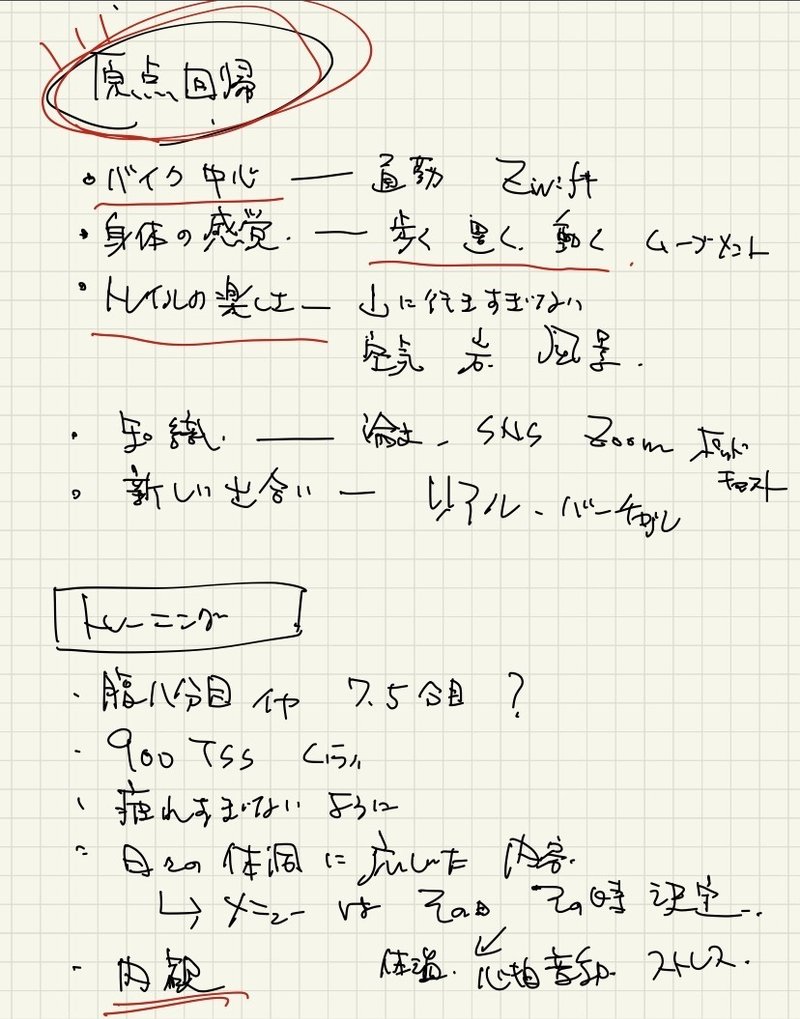 原点回帰
・バイク中心 — 通勤 Zwift
・身体の感覚. — 歩く 置く 動く. ムーブメント
・トレイルの楽しさ — 山に行きすぎない
空気 岩 風景.
・知識. — 論文、SNS Zoom ポッド
キャスト
・新しい出会い — リアル・バーチャル
トレーニング
・腹八分目 イヤ 7.5分目?
・900 TSS くらい
・疲れすぎないように
・日々の体調に応じた内容.
↳ メニューはその日その時決定.
・内観 体温. 心拍変動. ストレス.